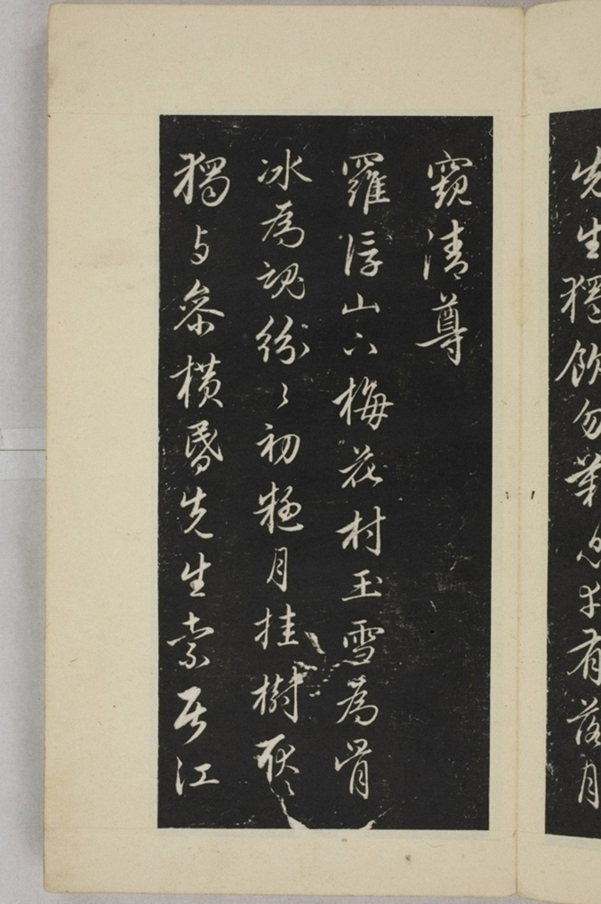 先生獨飲勿嘆息幸有落月
窺清尊
羅浮山下梅花村玉雪為骨
冰為魂紛〻初疑月挂樹耿〻
獨与參橫昏先生索居江